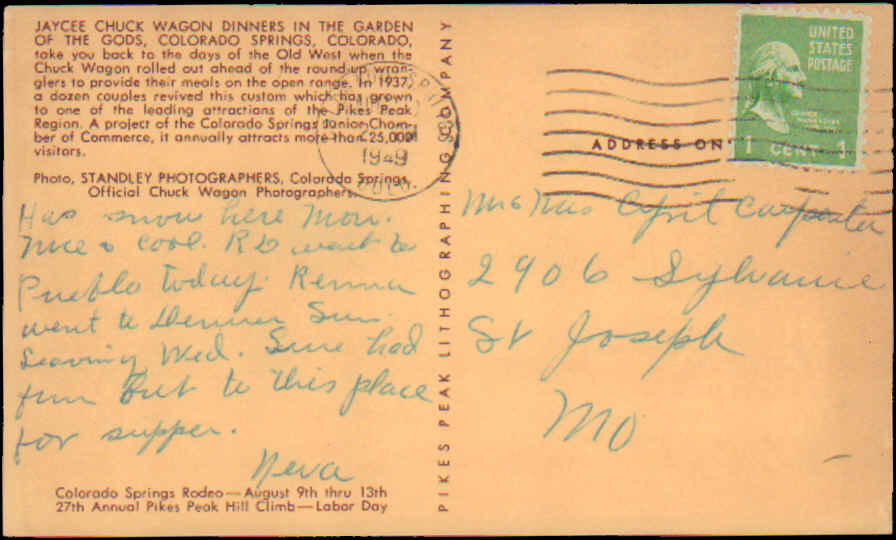 JAYCEE CHUCK WAGON DINNERS IN THE GARDEN
OF THE GODS, COLORADO SPRINGS, COLORADO,
take you back to the days of the Old West when the
Chuck Wagon rolled out ahead of the round-up wran-
glers to provide their meals on the open range. In 1937,
a dozen couples revived this custom which has grown
to one of the leading attractions of the Pikes Peak
Region. A project of the Colorado Springs Junior Cham-
ber of Commerce, it annually attracts more than 25,000
visitors.
Photo, STANDLEY PHOTOGRAPHERS, Colorado Springs,
Official Chuck Wagon Photographers.
Has snow here Mon.
Nice & cool. Ro went to
Pueblo today. Renna
went to Denver Sun.
Leaving Wed. Sure had
fun But to this place
for supper.
Neva
Colorado Springs Rodeo—August 9th thru 13th
27th Annual Pikes Peak Hill Climb—Labor Day
PIKES PEAK LITHOGRAPHING COMPANY
1949
COLO.
UNITED
STATES
POSTAGE
1 CENT 1
ADDRESS ON
Mr & Mrs Cyril Carpenter
2906 Sylvanie
St Joseph
MO